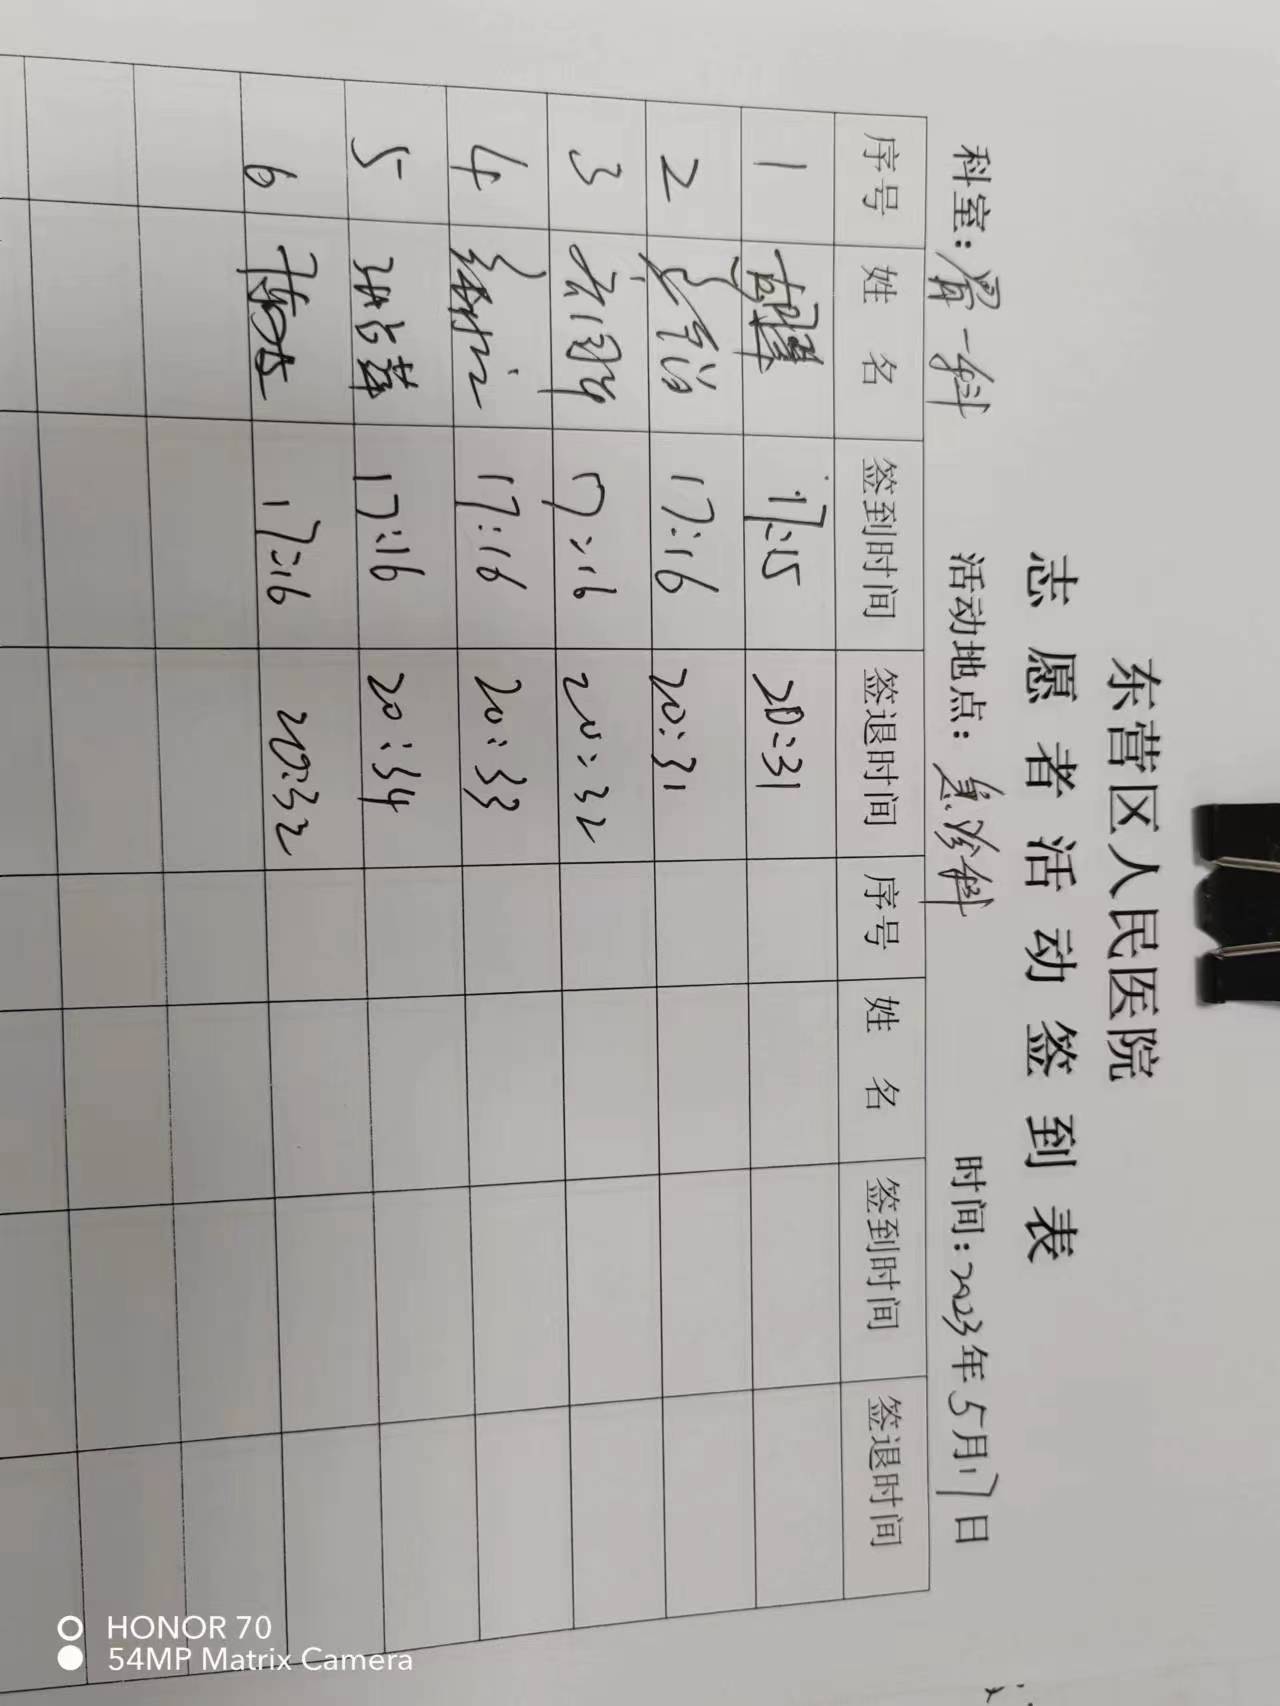 东营区人民医院
志愿者活动签到表
科室：骨一科 活动地点：急诊科 时间：2023年5月17日
序号 姓名 签到时间 签退时间 序号 姓名 签到时间 签退时间
1 17:15 20:31
2 17:16 20:31
3 17:16 20:32
4 17:16 20:33
5 17:16 20:34
6 17:16 20:32
HONOR 70
54MP Matrix Camera